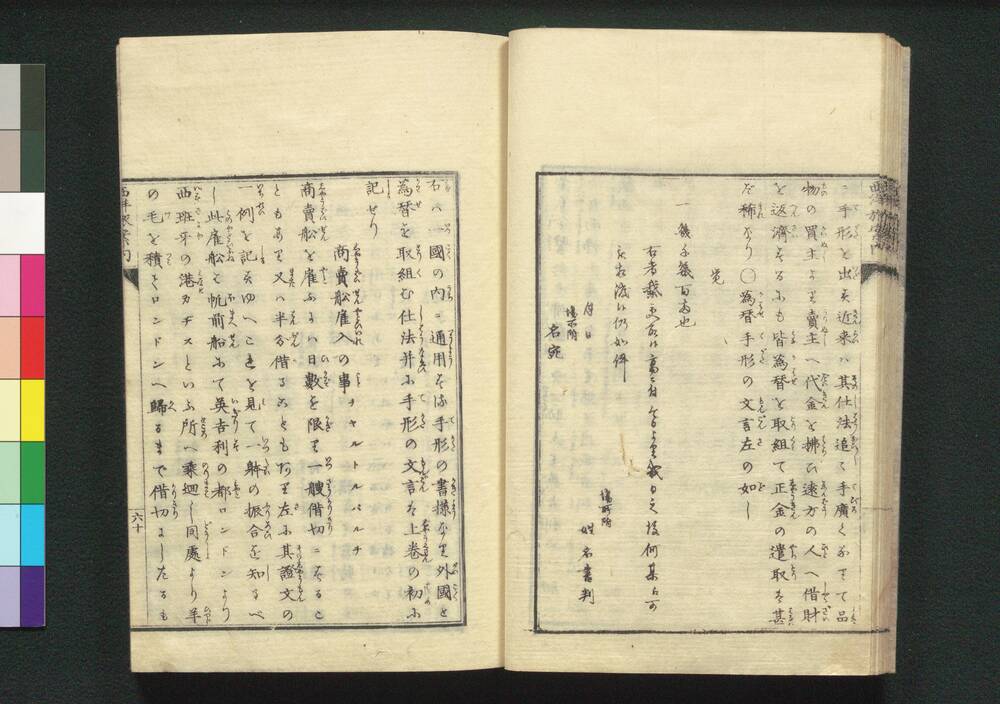 ニ手形を出す近来ハ其仕法追て手廣くなりて品
物の買主より賣主へ代金を拂ひ遠方の人へ借財
を返濟するにも皆為替を取組て正金の遣取ハ甚
た稀なり〇為替手形の文言左の如し
覚
一 幾千幾百両也
月 日
場所附
姓名書判
場所附
名宛
右ハ一國の内ニ通用する手形の書様なり外國と
為替を取組む仕法并に手形の文言ハ上巻の初に
記せり
商賣舩雇入の事 チャルトルパルチ
商賣舩を雇ふにハ日數を限り一艘借切ニするこ
ともあり又ハ半分借ることもあり左に其證文の
一例を記すゆへこれを見て一躰の振合を知るべ
し此雇舩ハ帆前船にて英吉利の都ロンドンより
西班牙の港カヂスといふ所へ乗廻し同處より羊
の毛を積てロンドンへ歸るまで借切にしたるも
六十